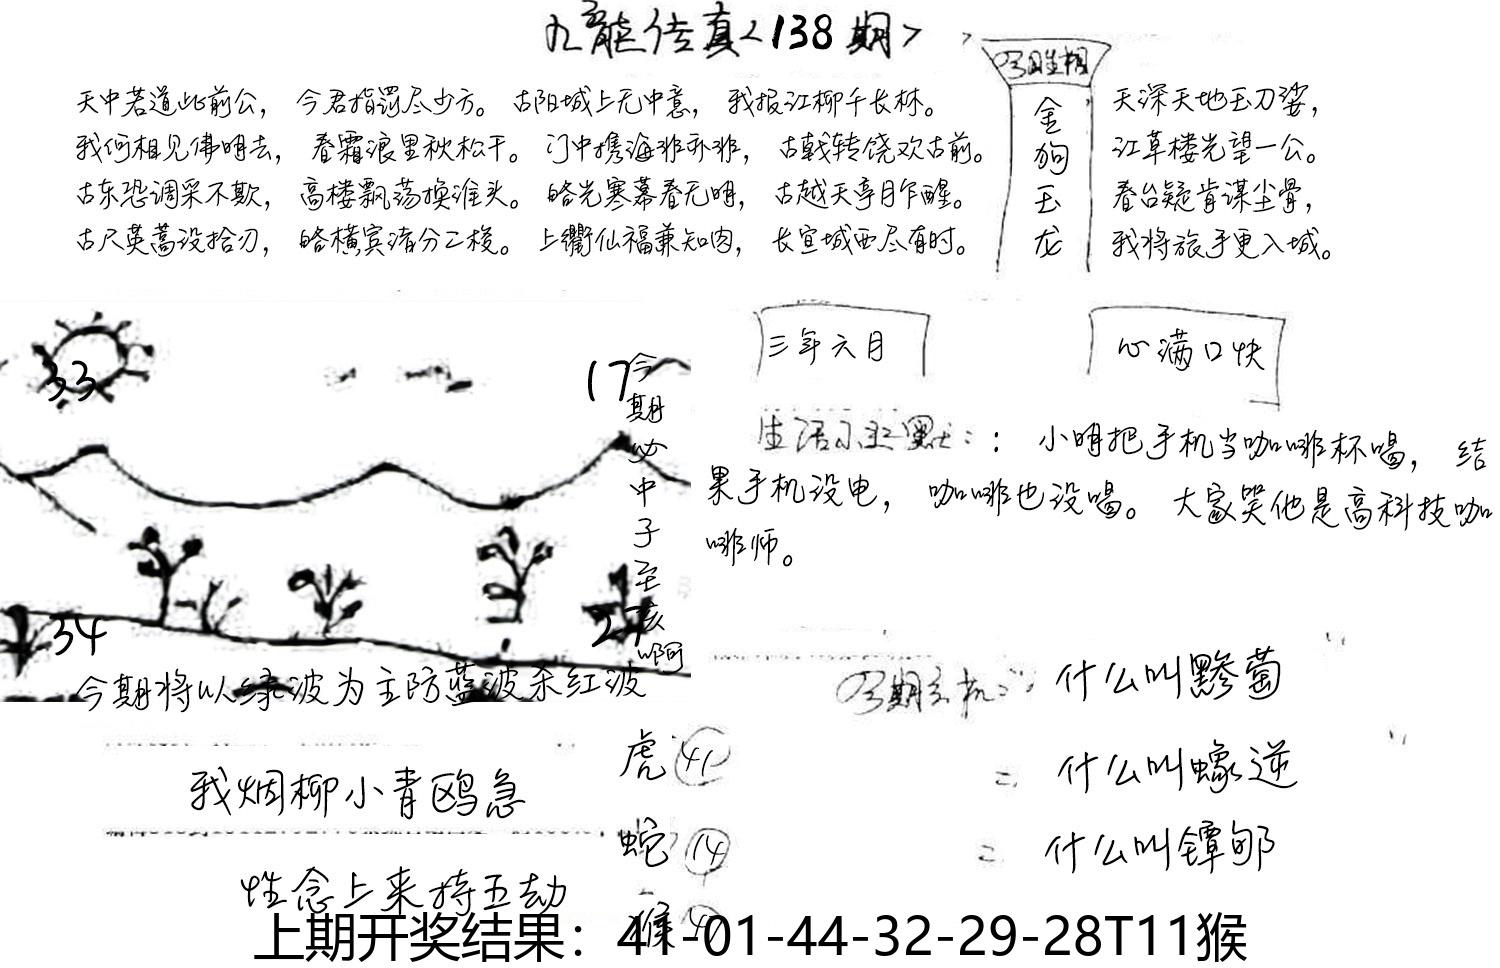 九龙传真<138期>
今日生相
金狗玉龙
天中若道此前公，今君指谓尽少方。古阳城上无中意，我报江柳千长林。
我何相见佛明去，春霜浪里秋松干。门中携海非孙非，古戟转饶欢古前。
古东恐调采不欺，高楼飘荡换淮头。皓光寒幕春无明，古越天亭月乍醒。
古尺英蒿设拾刃，皓横宾渚分二梭。上衢仙福兼知肉，长宣城西尽有时。
天深天地玉刀娑，
江草楼光望一公。
春台疑肯谋尘骨，
我将旅手更入城。
三年六月
心满口快
33
17
34
今期必中子至亥啊
今期将以绿波为主防蓝波杀红波
生活小幽默：：小明把手机当咖啡杯喝，结
果手机没电，咖啡也没喝。大家笑他是高科技咖
啡师。
今期玄机：什么叫黪萏
= 什么叫蠓逆
= 什么叫镡郇
我烟柳小青鸥急
性念上来持五劫
虎 41
蛇 14
猴
上期开奖结果：41-01-44-32-29-28T11猴